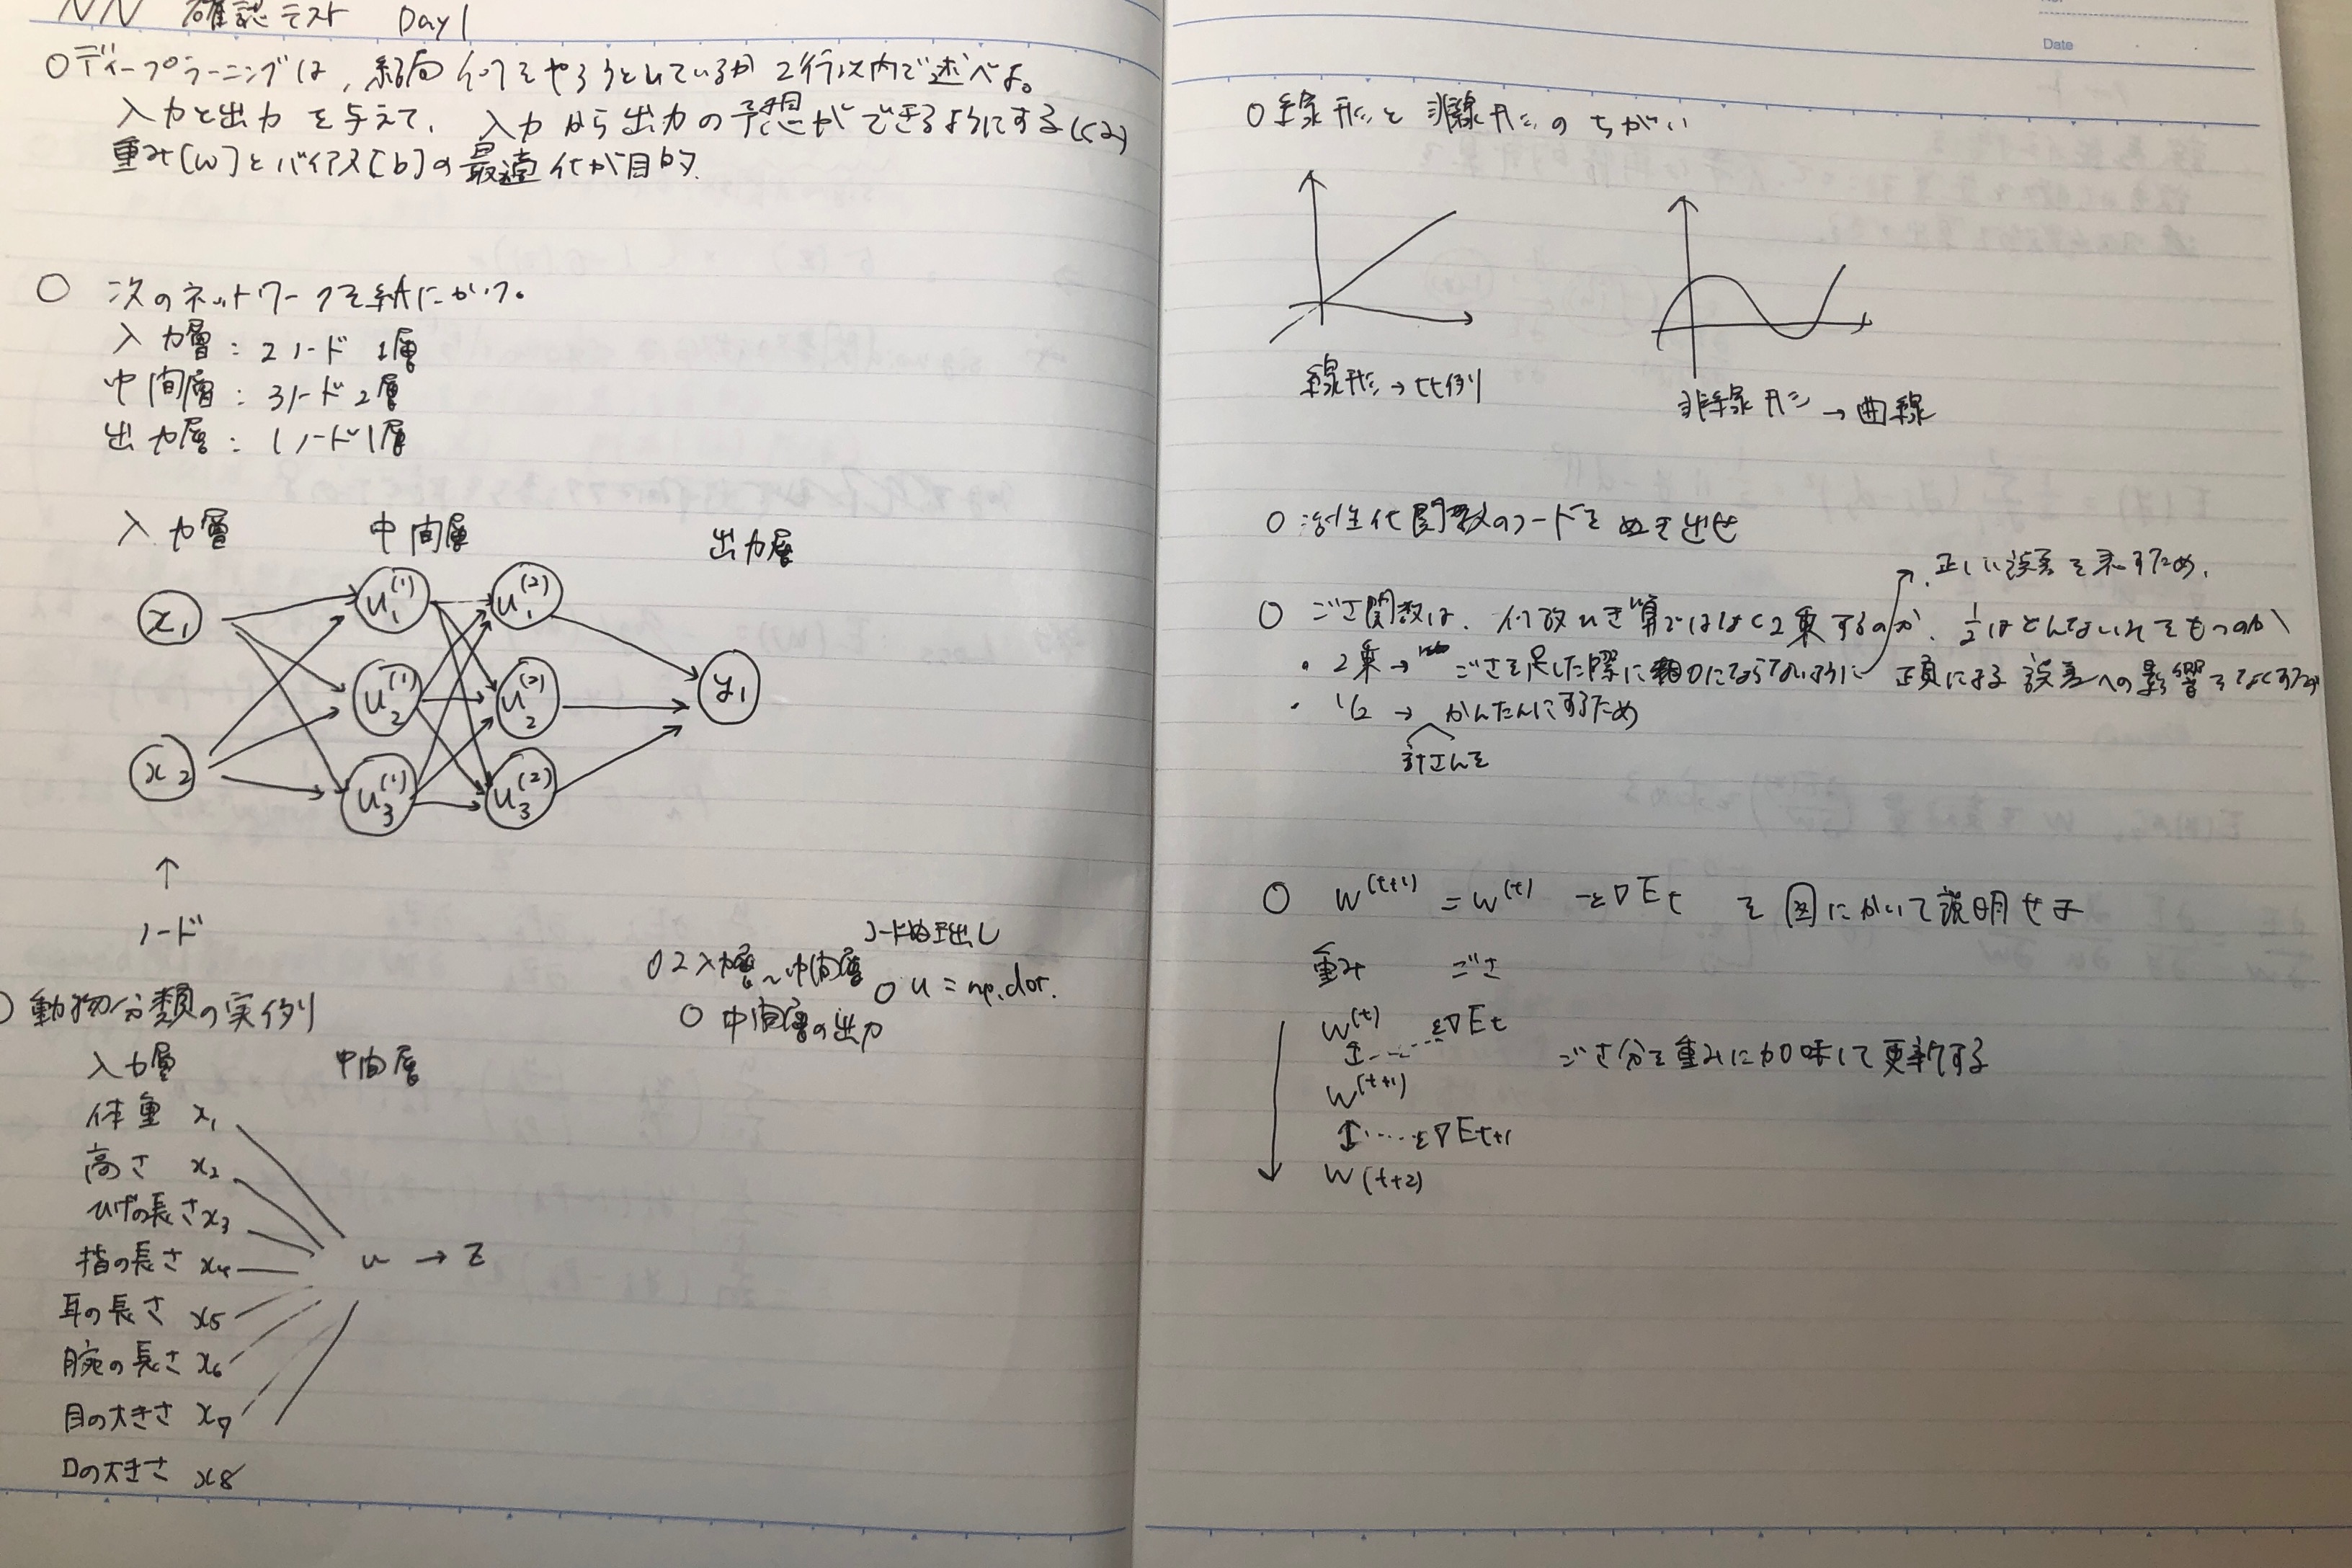 NN 確認テスト Day1
○ディープラーニングは、結局何をやろうとしているか2行以内で述べよ。
入力と出力を与えて、入力から出力の予想ができるようにする
重み[w]とバイアス[b]の最適化が目的.
○ 次のネットワークを紙にかけ。
入力層: 2ノード 1層
中間層: 3ノード 2層
出力層: 1ノード1層
入力層 中間層 出力層
x1 u1(1) u1(2)
u2(1) u2(2) y1
x2 u3(1) u3(2)
↑
ノード
○動物分類の実例
入力層 中間層
体重 x1
高さ x2
ひげの長さ x3
指の長さ x4 u → z
耳の長さ x5
腕の長さ x6
目の大きさ x7
口の大きさ x8
コードぬき出し
○2入力層～中間層 ○ u = np.dot.
○ 中間層の出力
Date
○線形と非線形のちがい
線形→比例
非線形→曲線
○活性化関数のコードをぬき出せ
正しい誤差を表すため.
○ ごさ関数は、何故ひき算ではなく2乗するのか、1/2はどんないみをもつのか
・2乗→ ごさを足した際に 0にならないように 正負による誤差への影響をなくすため
・1/2 → かんたんにするため
計さんを
○ w(t+1) = w(t) - ε∇Et を図にかいて説明せよ
重み ごさ
w(t)
ε∇Et
w(t+1) ごさ分を重みに加味して更新する
ε∇Et+1
w(t+2)